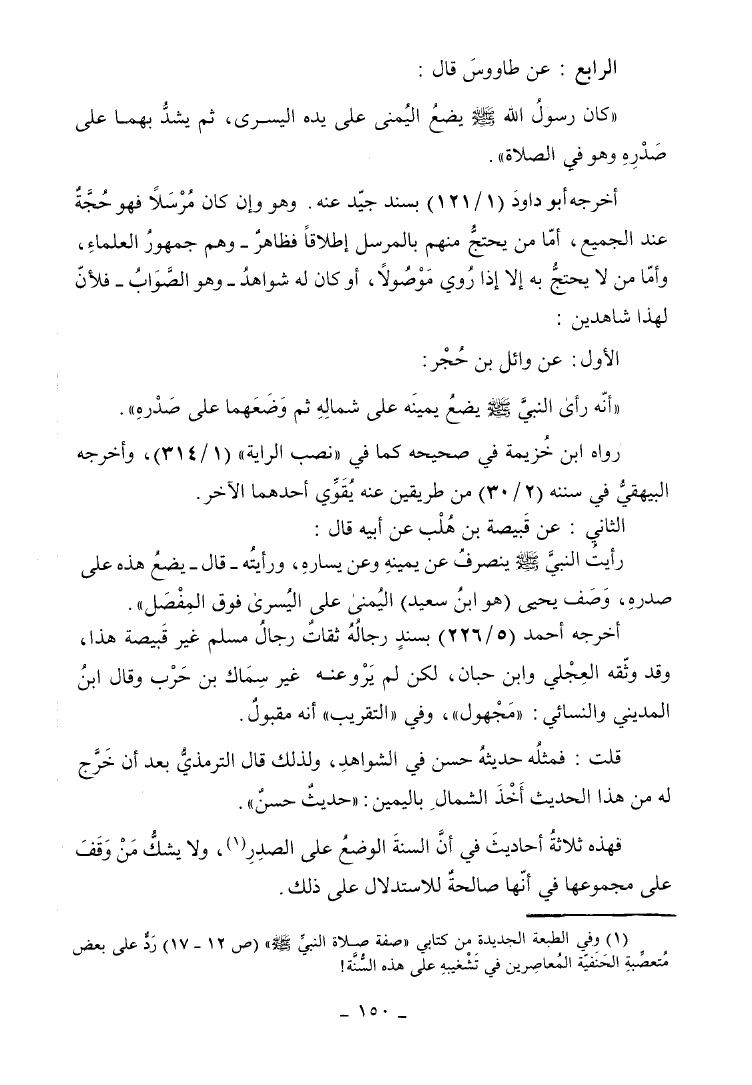 الرابع : عن طاووسَ قال :
«كان رسولُ الله ﷺ يضعُ اليُمنى على يده اليسرى، ثم يشدُّ بهما على
صَدْرِهِ وهو في الصلاة».
أخرجه أبو داودَ (١٢١/١) بسند جيّد عنه. وهو وإن كان مُرْسَلاً فهو حُجَّةٌ
عند الجميع، أمّا من يحتجُّ منهم بالمرسل إطلاقاً فظاهرٌ ـ وهم جمهورُ العلماءِ،
وأمّا من لا يحتجُّ به إلا إذا رُوي مَوْصُولاً، أو كان له شواهدُ ـ وهو الصَّوَابُ ـ فلأنّ
لهذا شاهدين :
الأول: عن وائل بن حُجْر:
«أنّه رأىٰ النبيَّ ﷺ يضعُ يمينَه على شمالِهِ ثم وَضَعَهما على صَدْرِه».
رواه ابن خُزيمة في صحيحه كما في «نصب الراية» (٣١٤/١)، وأخرجه
البيهقيُّ في سننه (٣٠/٢) من طريقين عنه يُقَوِّي أحدهما الآخر.
الثاني : عن قَبيصة بن هُلْب عن أبيه قال :
رأيتُ النبيَّ ﷺ ينصرفُ عن يمينِهِ وعن يسارِهِ، ورأيتُه ـ قال ـ يضعُ هذه على
صدرِهِ، وَصَف يحيى (هو ابنُ سعيد) اليُمنىٰ على اليُسرىٰ فوق المِفْصَل».
أخرجه أحمد (٢٢٦/٥) بسندٍ رجالُهُ ثقاتٌ رجالُ مسلم غير قَبيصة هذا،
وقد وثّقه العِجْلي وابن حبان، لكن لم يَرْوِ عنه غير سِمَاك بن حَرْب وقال ابنُ
المديني والنسائي : «مَجْهول»، وفي «التقريب» أنه مقبولٌ.
قلت : فمثلُه حديثهُ حسن في الشواهدِ، ولذلك قال الترمذيُّ بعد أن خَرَّج
له من هذا الحديث أَخْذَ الشمالِ باليمين: «حديثٌ حسنٌ».
فهذه ثلاثةُ أحاديثَ في أنَّ السنةَ الوضعُ على الصدرِ(١)، ولا يشكُّ مَنْ وَقَفَ
على مجموعها في أنّها صالحةٌ للاستدلال على ذلك.
(١) وفي الطبعة الجديدة من كتابي «صفة صلاة النبيِّ ﷺ» (ص ١٢ - ١٧) رَدٌّ على بعض
مُتعصِّبةِ الحَنَفيّة المُعاصِرين في تَشْغيبِهِ على هذه السُّنَّة!
ـ ١٥٠ ـ